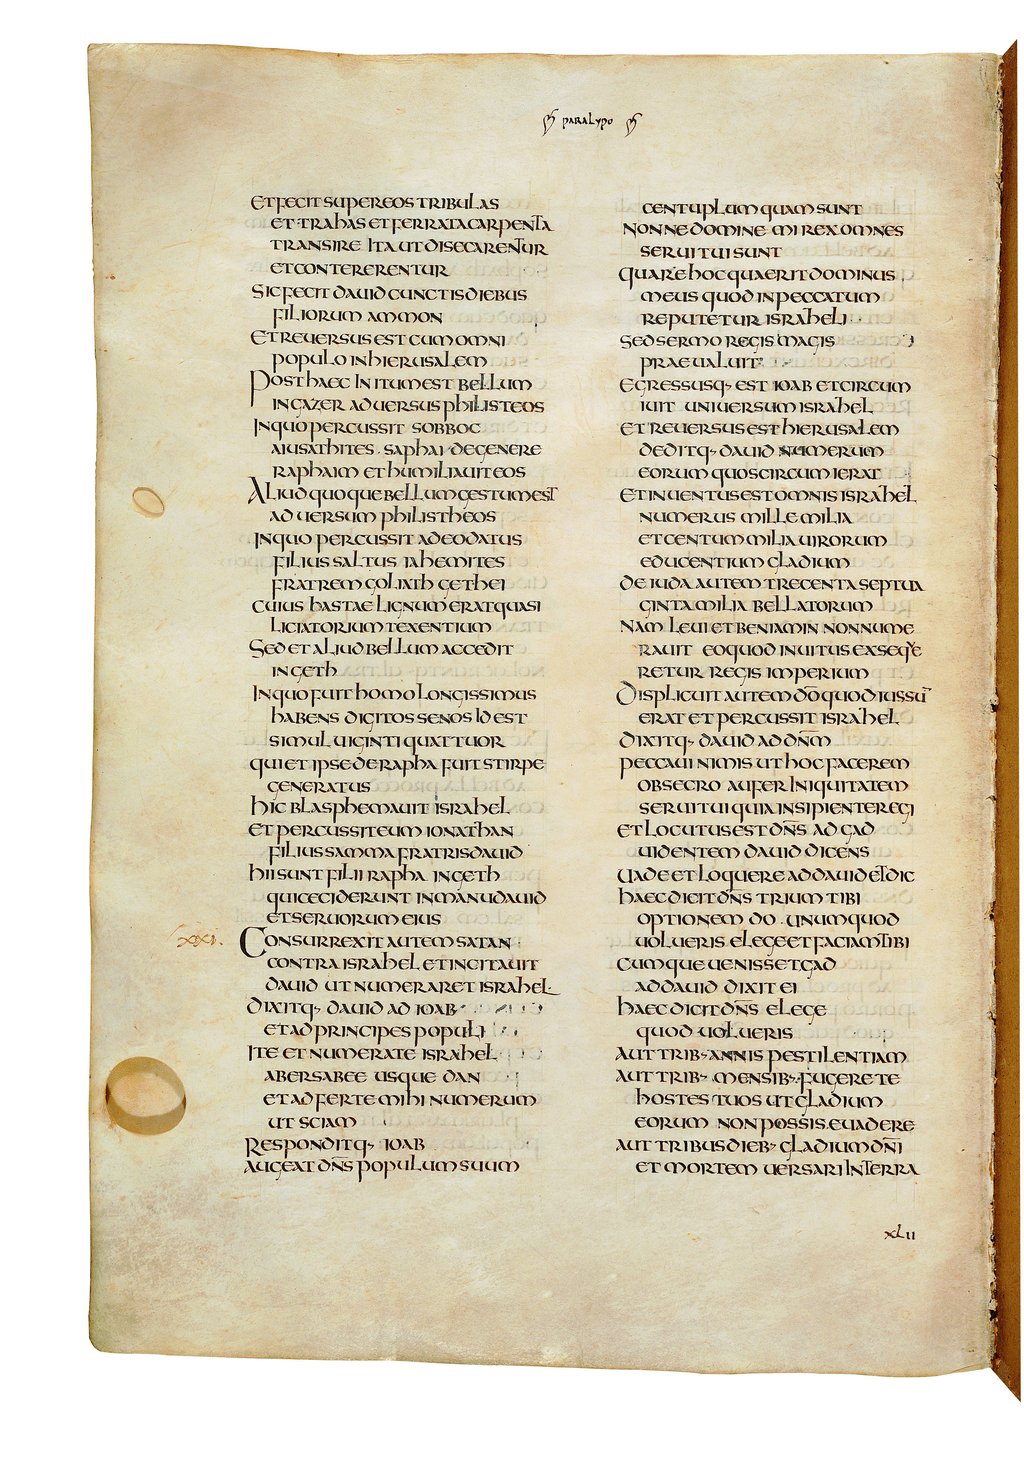 PARALYPO
ET FECIT SUPER EOS TRIBULAS
ET TRAHAS ET FERRATA CARPENTA
TRANSIRE ITA UT DISECARENTUR
ET CONTERERENTUR
SIC FECIT DAUID CUNCTIS DIEBUS
FILIORUM AMMON
ET REUERSUS EST CUM OMNI
POPULO IN HIERUSALEM
POST HAEC INITUM EST BELLUM
IN GAZER ADUERSUS PHILISTEOS
IN QUO PERCUSSIT SOBBOC
AIUSATHITES · SAPHAI · DE GENERE
RAPHAIM ET HUMILIAUIT EOS
ALIUD QUOQUE BELLUM GESTUM EST
ADUERSUM PHILISTHEOS
IN QUO PERCUSSIT ADEODATUS
FILIUS SALTUS IAHEMITES
FRATREM GOLIATH GETHEI
CUIUS HASTAE LIGNUM ERAT QUASI
LICIATORIUM TEXENTIUM
SED ET ALIUD BELLUM ACCEDIT
IN GETH
IN QUO FUIT HOMO LONGISSIMUS
HABENS DIGITOS SENOS ID EST
SIMUL UIGINTI QUATTUOR
QUI ET IPSE DE RAPHA FUIT STIRPE
GENERATUS
HIC BLASPHEMAUIT ISRAHEL
ET PERCUSSIT EUM IONATHAN
FILIUS SAMMA FRATRIS DAUID
HII SUNT FILII RAPHA IN GETH
QUI CECIDERUNT IN MANU DAUID
ET SERUORUM EIUS
XXI. CONSURREXIT AUTEM SATAN
CONTRA ISRAHEL ET INCITAUIT
DAUID UT NUMERARET ISRAHEL
DIXITQ· DAUID AD IOAB
ET AD PRINCIPES POPULI
ITE ET NUMERATE ISRAHEL
A BERSABEE USQUE DAN
ET ADFERTE MIHI NUMERUM
UT SCIAM
RESPONDITQ· IOAB
AUGEAT DN̅S POPULUM SUUM
CENTUPLUM QUAM SUNT
NONNE DOMINE MI REX OMNES
SERUI TUI SUNT
QUARE HOC QUAERIT DOMINUS
MEUS QUOD IN PECCATUM
REPUTETUR ISRAHELI
SED SERMO REGIS MAGIS
PRAEUALUIT
EGRESSUSQ· EST IOAB ET CIRCUM
IUIT UNIUERSUM ISRAHEL
ET REUERSUS EST HIERUSALEM
DEDITQ· DAUID NUMERUM
EORUM QUOS CIRCUMIERAT
ET INUENTUS EST OMNIS ISRAHEL
NUMERUS MILLE MILIA
ET CENTUM MILIA UIRORUM
EDUCENTIUM GLADIUM
DE IUDA AUTEM TRECENTA SEPTUA
GINTA MILIA BELLATORUM
NAM LEUI ET BENIAMIN NON NUME
RAUIT EO QUOD INUITUS EXSEQUE
RETUR REGIS IMPERIUM
DISPLICUIT AUTEM DO̅ QUOD IUSSU̅
ERAT ET PERCUSSIT ISRAHEL
DIXITQ· DAUID AD DN̅M
PECCAUI NIMIS UT HOC FACEREM
OBSECRO AUFER INIQUITATEM
SERUI TUI QUIA INSIPIENTER EGI
ET LOCUTUS EST DN̅S AD GAD
UIDENTEM DAUID DICENS
UADE ET LOQUERE AD DAUID ET DIC
HAEC DICIT DN̅S TRIUM TIBI
OPTIONEM DO · UNUM QUOD
UOLUERIS ELEGE ET FACIAM TIBI
CUMQUE UENISSET GAD
AD DAUID DIXIT EI
HAEC DICIT DN̅S ELEGE
QUOD UOLUERIS
AUT TRIB· ANNIS PESTILENTIAM
AUT TRIB· MENSIB· FUGERE TE
HOSTES TUOS UT GLADIUM
EORUM NON POSSIS EUADERE
AUT TRIBUS DIEB· GLADIUM DN̅I
ET MORTEM UERSARI IN TERRA
XLII